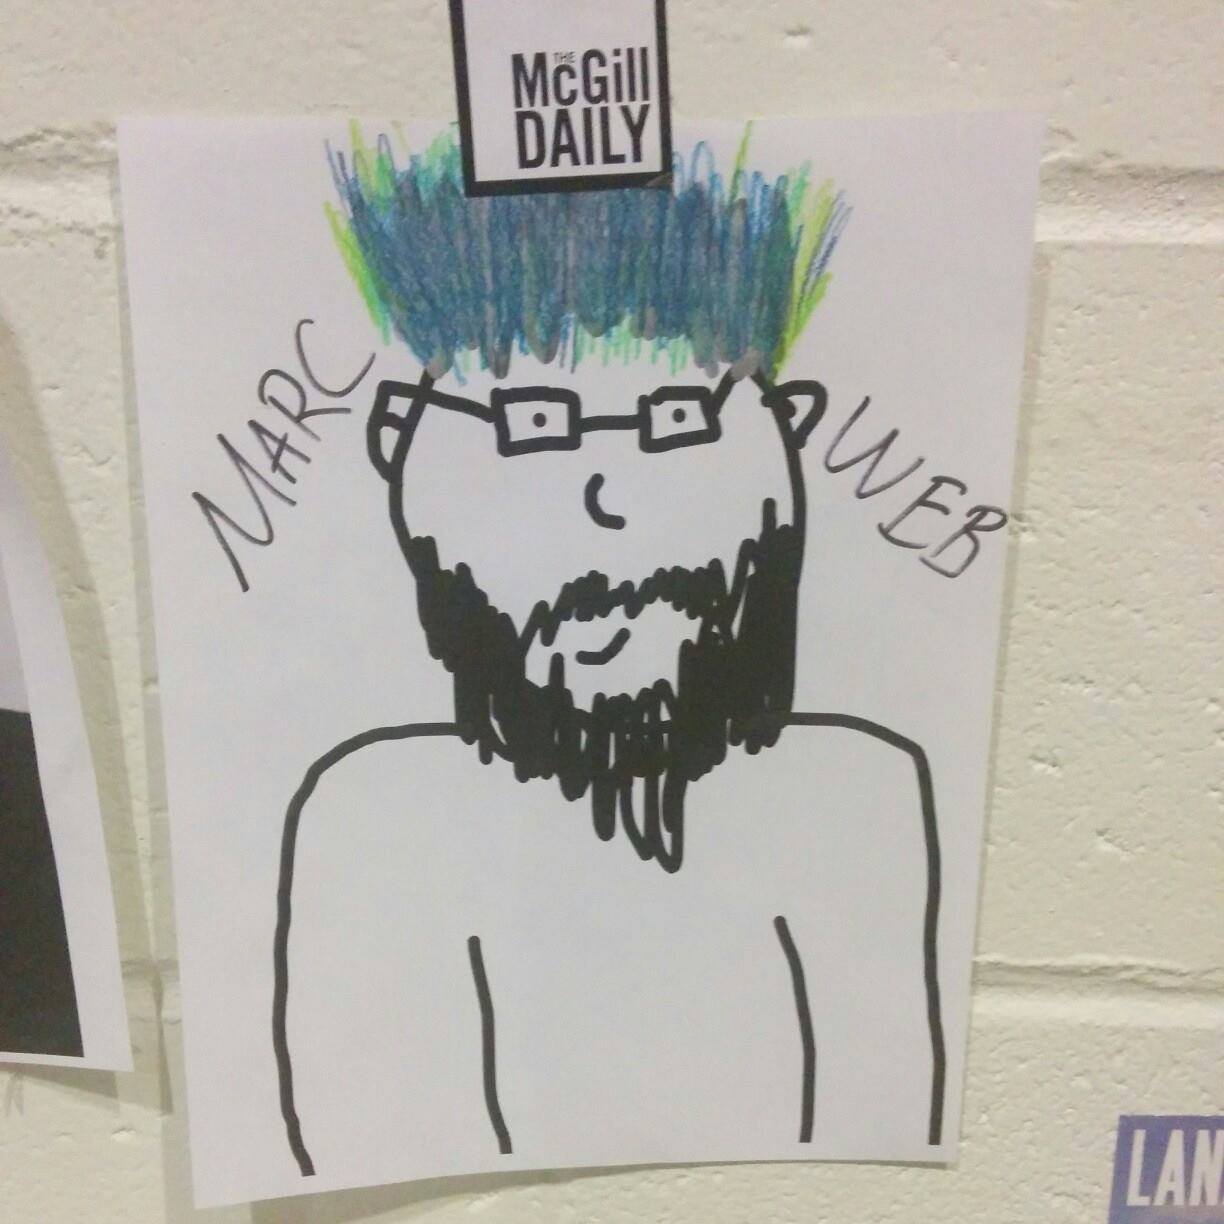 THE
McGill
DAILY
MARC
WEB
LAN